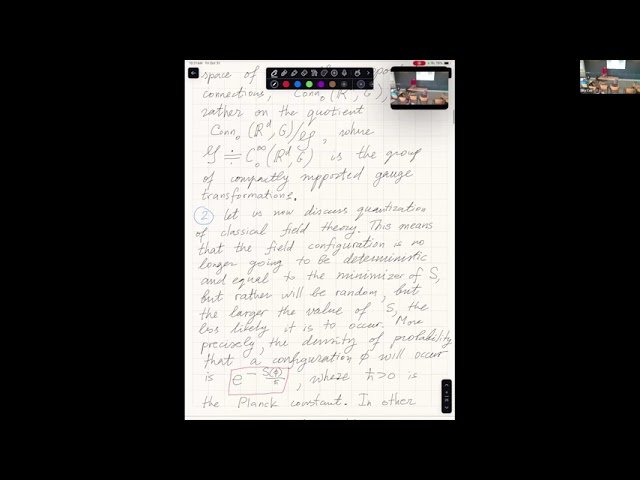 space of
connections, Conn₀(ℝᵈ, G),
rather on the quotient
Conn₀(ℝᵈ, G)/𝒢, where
𝒢 ≔ C₀^∞(ℝᵈ, G) is the group
of compactly supported gauge
transformations.
② Let us now discuss quantization
of classical field theory. This means
that the field configuration is no
longer going to be deterministic
and equal to the minimizer of S,
but rather will be random, but
the larger the value of S, the
less likely it is to occur. More
precisely, the density of probability
that a configuration ϕ will occur
is e^{-S(ϕ)/ħ}, where ħ>0 is
the Planck constant. In other